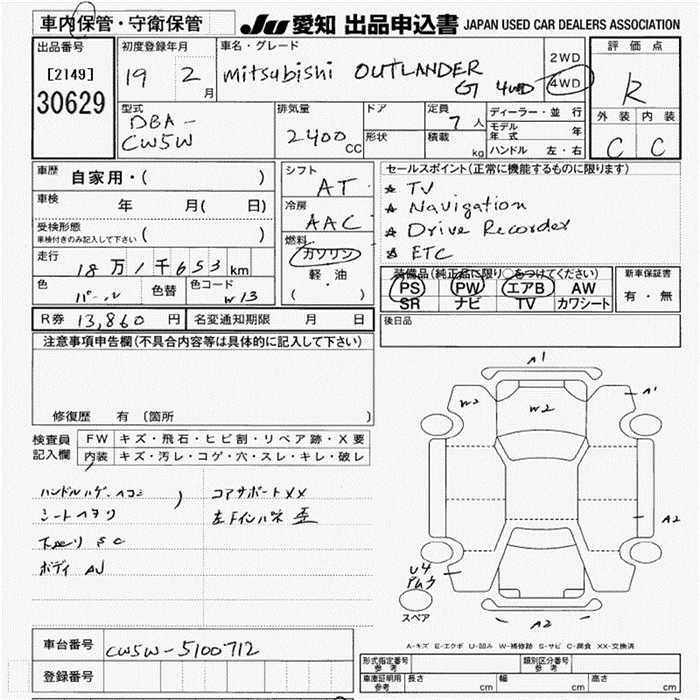 車内保管・守衛保管 JU 愛知 出品申込書 JAPAN USED CAR DEALERS ASSOCIATION
出品番号 初度登録年月 車名・グレード 2WD 評価点
[2149] 19 2 月 Mitsubishi OUTLANDER 4WD R
30629 G 4WD
型式 排気量 ドア 定員 ディーラー・並行 外装 内装
DBA- 2400 CC 7 人 モデル年式 年 C C
CW5W 形状 積載 kg ハンドル 左・右
車歴 自家用・( ) シフト AT セールスポイント(正常に機能するものに限ります)
車検 年 月( 日) 冷房 AAC ☆ TV
受検形態 ( ) ☆ Navigation
車検付きのみ記入して下さい 燃料 ☆ Drive Recorder
走行 18万1千653km ガソリン ☆ ETC
色 色替 色コード 軽・油 装備品(純正品に限り○をつけてください) 新車保証書
パール W13 ( ・ ) PS PW エアB AW 有・無
SR ナビ TV カワシート
R券 13,860 円 名変通知期限 月 日 後日品
注意事項申告欄(不具合内容等は具体的に記入して下さい)
修復歴 有 〔箇所
検査員 FW キズ・飛石・ヒビ割・リペア跡・X要
記入欄 内装 キズ・汚レ・コゲ・穴・スレ・キレ・破レ
ハンドルハゲ、ヘコミ コアサポートXX
シートヘタリ
下廻り S C
ボディ AU
A1
W2 W2 A1
A2
U4
スペア A2
A-キズ E-エクボ U-凹み W-補修跡 S-サビ C-腐食 XX-交換済
車台番号 CW5W-5100712
登録番号
形式指定番号 参考 類別区分番号 参考
車庫証明用 参考 長さ cm 幅 cm 高さ cm